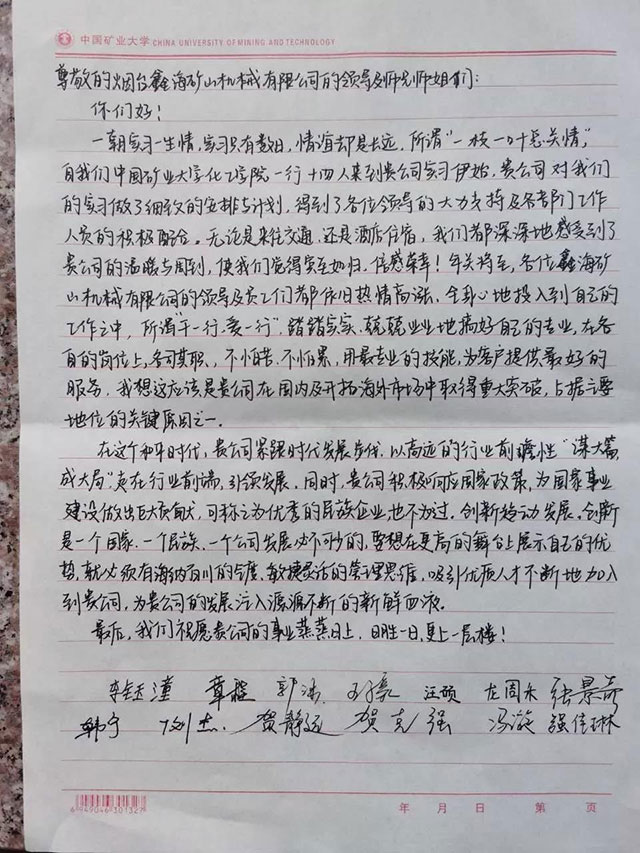 中国矿业大学 CHINA UNIVERSITY OF MINING AND TECHNOLOGY
尊敬的烟台鑫海矿山机械有限公司的领导及师兄师姐们:
你们好!
一朝实习一生情,实习只有数日,情谊却是长远,所谓"一枝一叶总关情",
自我们中国矿业大学化工学院一行十四人来到贵公司实习伊始,贵公司对我们
的实习做了细致的安排与计划,得到了各位领导的大力支持及各部门工作
人员的积极配合。无论是来往交通,还是酒店住宿,我们都深深地感受到了
贵公司的温暖与周到,使我们觉得宾至如归,倍感荣幸!年关将至,各位鑫海矿
山机械有限公司的领导及员工们都依旧热情高涨,全身心地投入到自己的
工作之中,所谓"干一行,爱一行",踏踏实实、兢兢业业地搞好自己的专业,在各
自的岗位上,各司其职、不怕苦、不怕累,用最专业的技能,为客户提供最好的
服务,我想这应该是贵公司在国内及开拓海外市场中取得重大突破,占据主要
地位的关键原因之一.
在这个和平时代,贵公司紧跟时代发展步伐,以高远的行业前瞻性"谋大篇,
成大局"走在行业前端,引领发展,同时,贵公司积极响应国家政策,为国家事业
建设做出巨大贡献,可称之为优秀的民族企业,也不为过,创新推动发展,创新
是一个国家、一个民族、一个公司发展必不可少的,要想在更高的舞台上展示自己的优
势,就必须有海纳百川的气度、敏捷灵活的管理思维,吸引优质人才不断地加入
到贵公司,为贵公司的发展注入源源不断的新鲜血液。
最后,我们祝愿贵公司的事业蒸蒸日上,日胜一日,更上一层楼!
李钰潼 章程 郭 汪硕 左周永 张景
韩宁 刘杰 贺静远 贺克强 冯漩 强佳琳
6949046301327
年 月 日 第 页